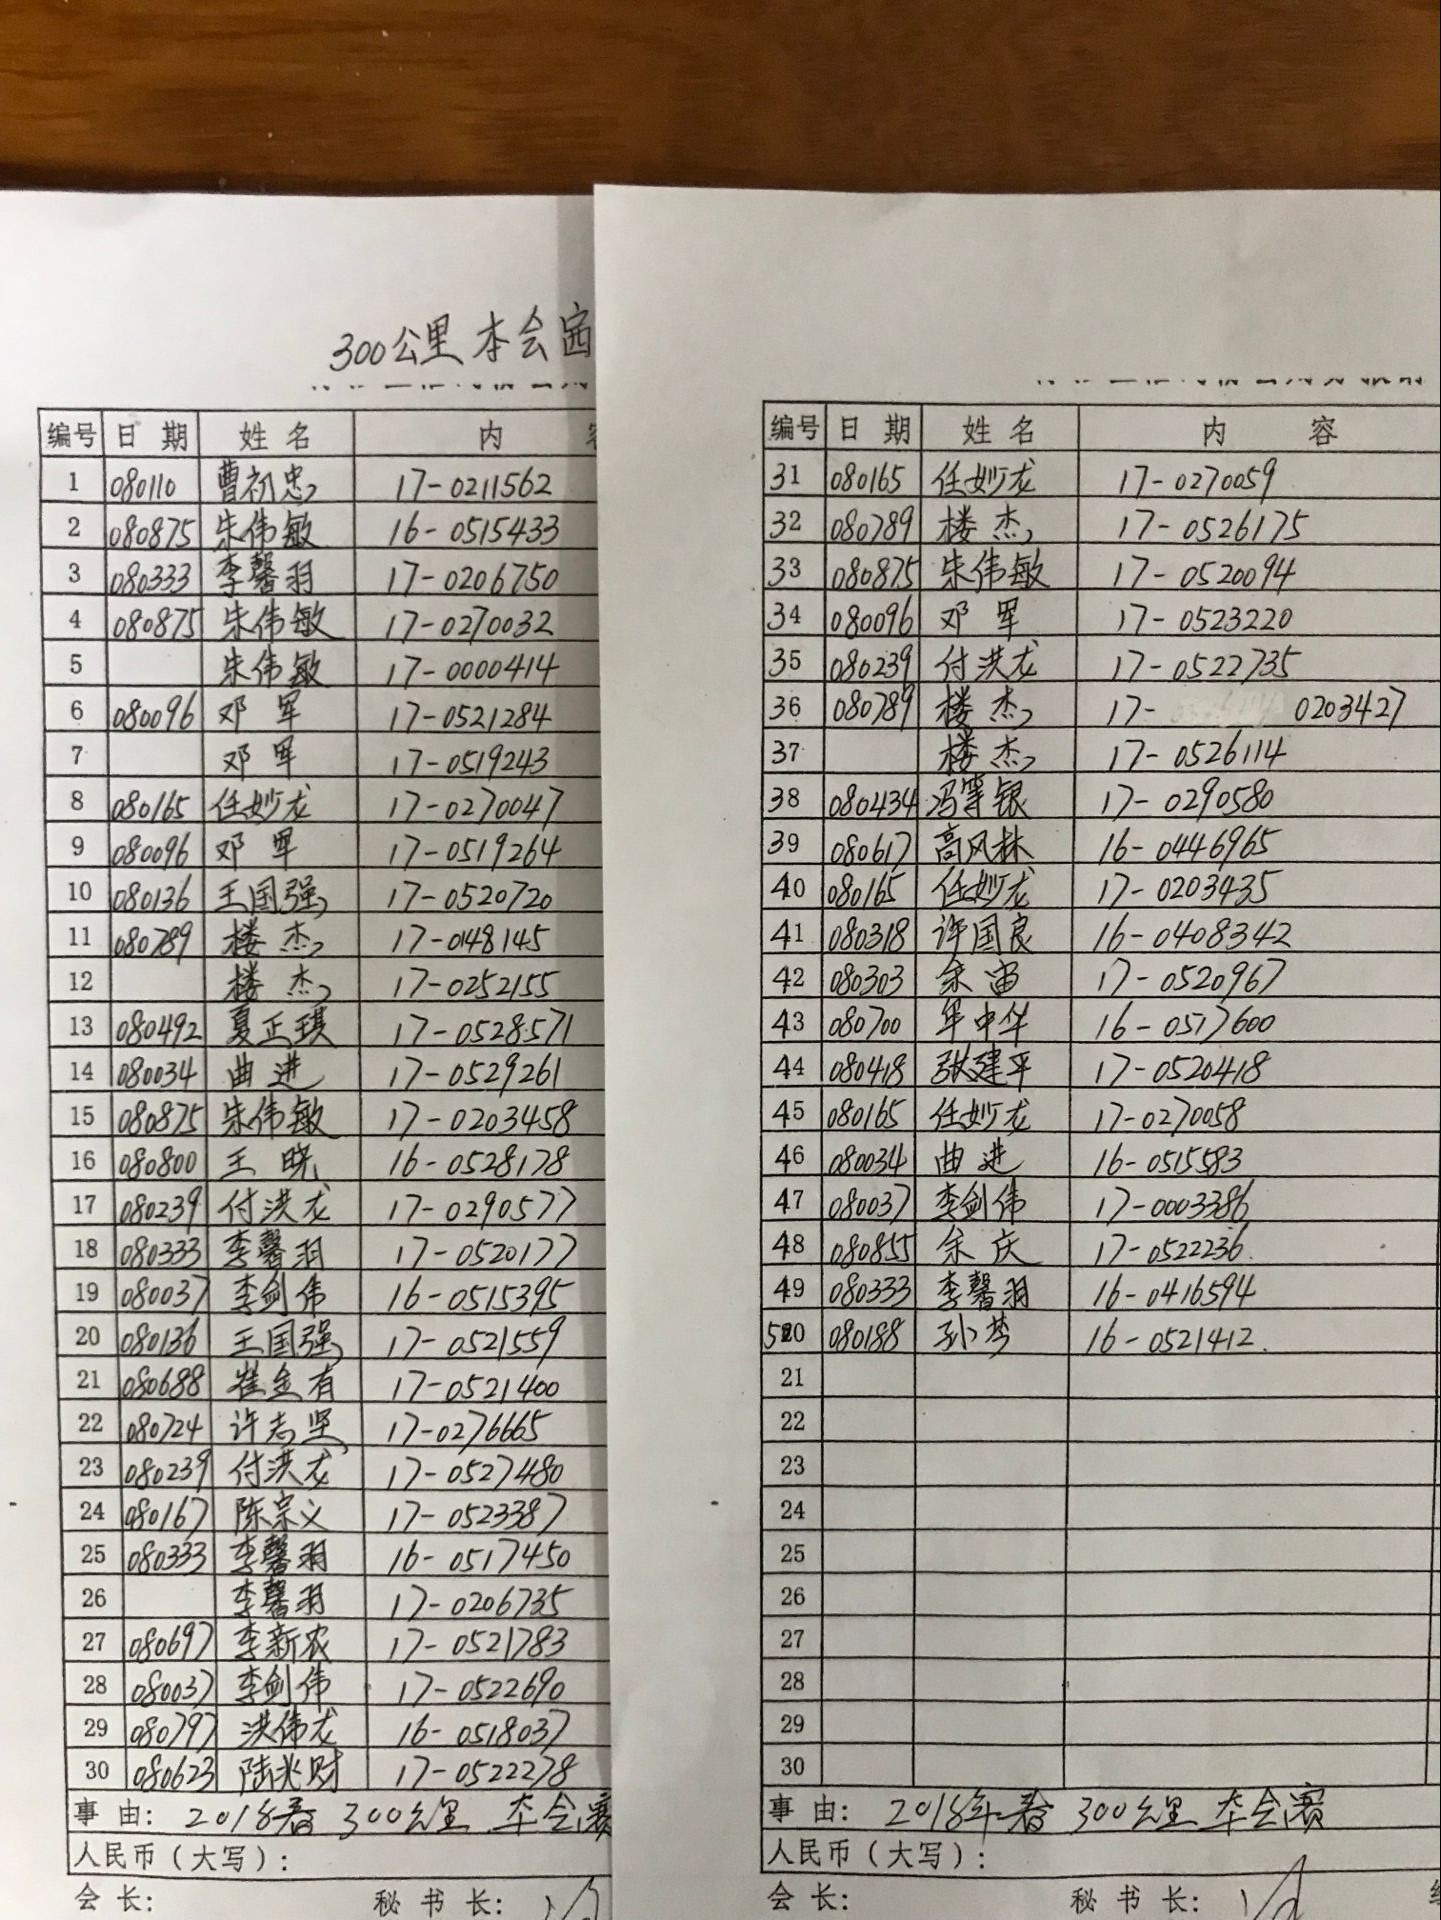 300公里本会
编号 日 期 姓 名 内
1 080110 曹初忠 17-0211562
2 080875 朱伟敏 16-0515433
3 080333 李馨羽 17-0206750
4 080875 朱伟敏 17-0270032
5 朱伟敏 17-0000414
6 080096 邓 军 17-0521284
7 邓 军 17-0519243
8 080165 任妙龙 17-0270047
9 080096 邓 军 17-0519264
10 080136 王国强 17-0520720
11 080789 楼 杰 17-0148145
12 楼 杰 17-0252155
13 080492 夏正琪 17-0528571
14 080034 曲 进 17-0529261
15 080875 朱伟敏 17-0203458
16 080800 王 晓 16-0528178
17 080239 付洪龙 17-0290577
18 080333 李馨羽 17-0520177
19 080037 李剑伟 16-0515395
20 080136 王国强 17-0521559
21 080688 崔金有 17-0521400
22 080724 许志坚 17-0276665
23 080239 付洪龙 17-0527480
24 080167 陈宗义 17-0523387
25 080333 李馨羽 16-0517450
26 李馨羽 17-0206735
27 080697 李新农 17-0521783
28 080037 李剑伟 17-0522690
29 080797 洪伟龙 16-0518037
30 080623 陆兆财 17-0522278
事 由: 2018春 300公里 本会赛
人民币(大写):
会 长: 秘 书 长:
编号 日 期 姓 名 内 容
31 080165 任妙龙 17-0270059
32 080789 楼 杰 17-0526175
33 080875 朱伟敏 17-0520094
34 080096 邓 军 17-0523220
35 080239 付洪龙 17-0522735
36 080789 楼 杰 17- 0203427
37 楼 杰 17-0526114
38 080434 冯银 17-0290580
39 080617 高风林 16-0446965
40 080165 任妙龙 17-0203435
41 080318 许国良 16-0408342
42 080303 余 宙 17-0520967
43 080700 牟中华 16-0517600
44 080418 张建平 17-0520418
45 080165 任妙龙 17-0270058
46 080034 曲 进 16-0515583
47 080037 李剑伟 17-0003386
48 080855 余 庆 17-0522236.
49 080333 李馨羽 16-0416594
50 080188 孙 梦 16-0521412.
21
22
23
24
25
26
27
28
29
30
事 由: 2018年春 300公里 本会赛
人民币(大写):
会 长: 秘 书 长: